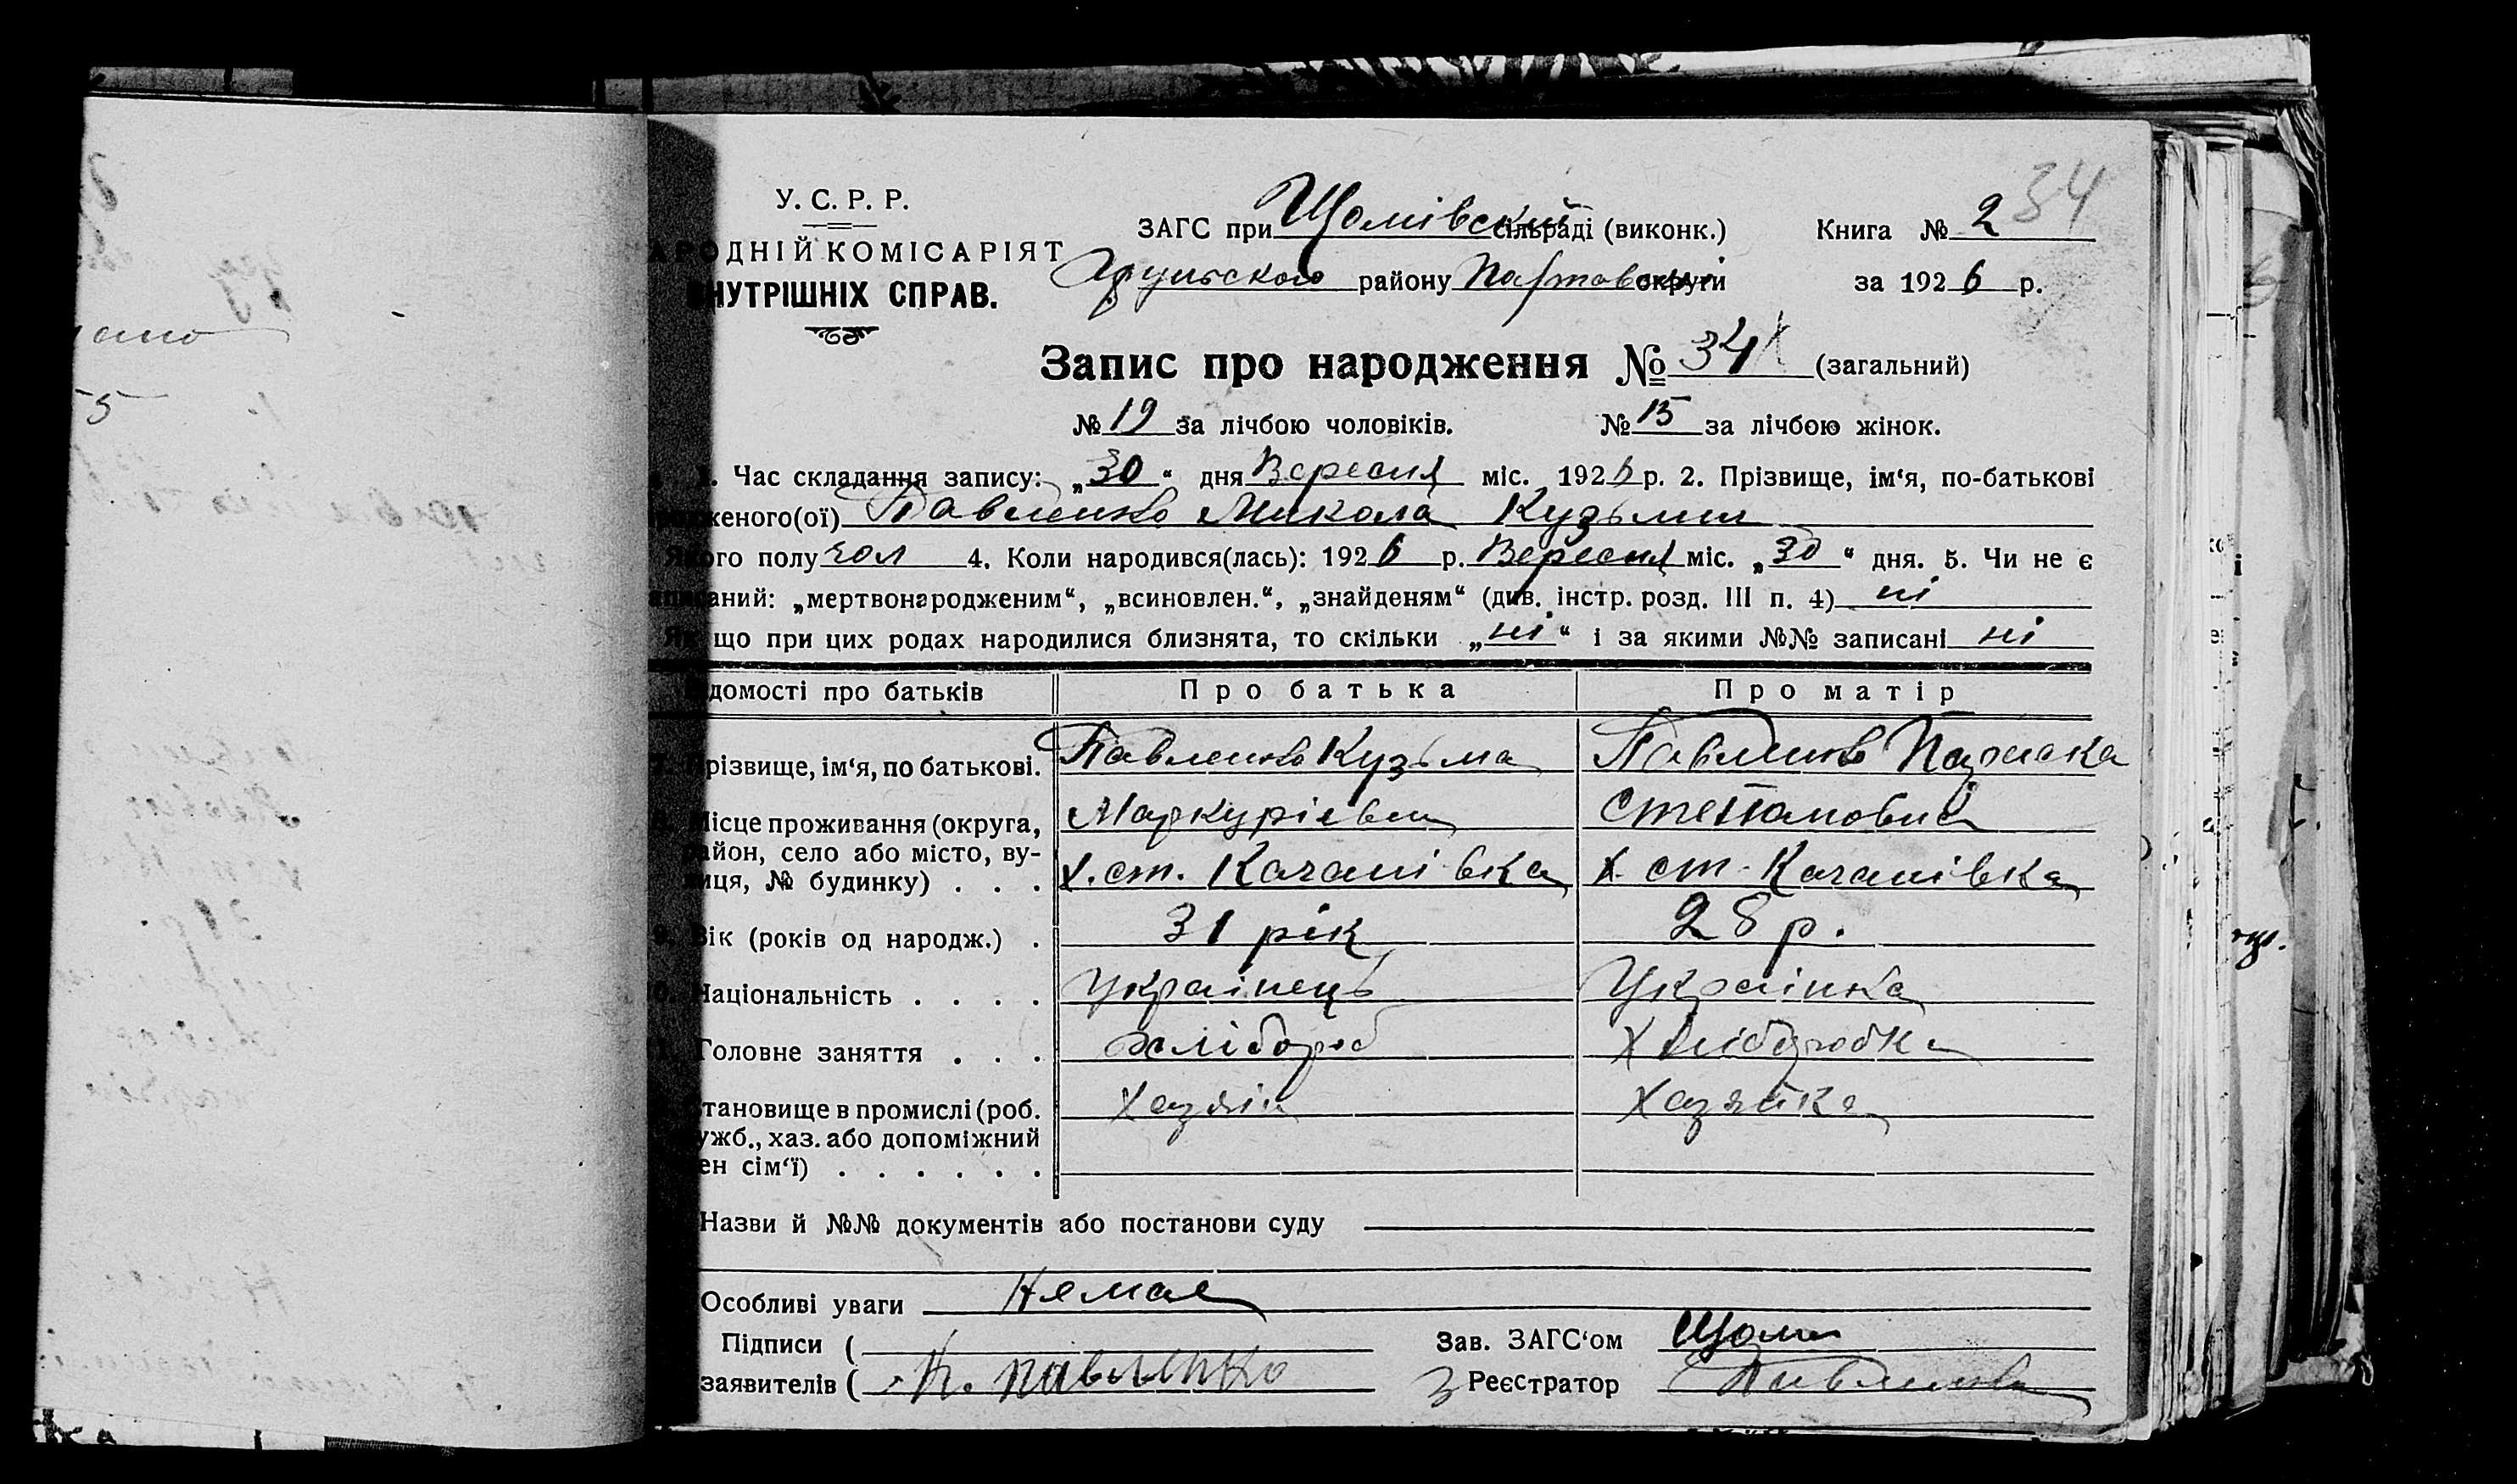 34
У. С. Р. Р.
ЗАГС при Щомівській сільраді (виконк.) Книга № 2
АРОДНІЙ КОМІСАРІЯТ
району округи за 1926 р.
НУТРІШНІХ СПРАВ.
Запис про народження № 34 (загальний)
№ 19 за лічбою чоловіків. № 15 за лічбою жінок.
1. Час складання запису: „30“ дня Вересня міс. 1926 р. 2. Прізвище, ім‘я, по-батькові
женого(ої) Павленко Микола Кузьмич
якого полу чол 4. Коли народився(лась): 1926 р. Вересня міс. „30“ дня. 5. Чи не є
аний: „мертвонародженим“, „всиновлен.“, „знайденям“ (див. інстр. розд. III п. 4) ні
Як що при цих родах народилися близнята, то скільки „ні“ і за якими №№ записані ні
ідомості про батьків Про батька Про матір
7. Прізвище, ім‘я, по батькові. Павленко Кузьма Павленко Параска
Маркурієвич Степановна
8. Місце проживання (округа,
район, село або місто, ву-
лиця, № будинку) . . . х. ст. Качанівка х. ст. Качанівка
9. Вік (років од народж.) . 31 рік 28 р.
10. Національність . . . . Українець Українка
11. Головне заняття . . . хлібороб хліборобка
тановище в промислі (роб. хазяїн хазяйка
ужб., хаз. або допоміжний
ен сім‘ї) . . . . . .
Назви й №№ документів або постанови суду
Особливі уваги Немає
Підписи ( Зав. ЗАГС‘ом Щома
заявителів ( К. Павленко З Реєстратор Павленко